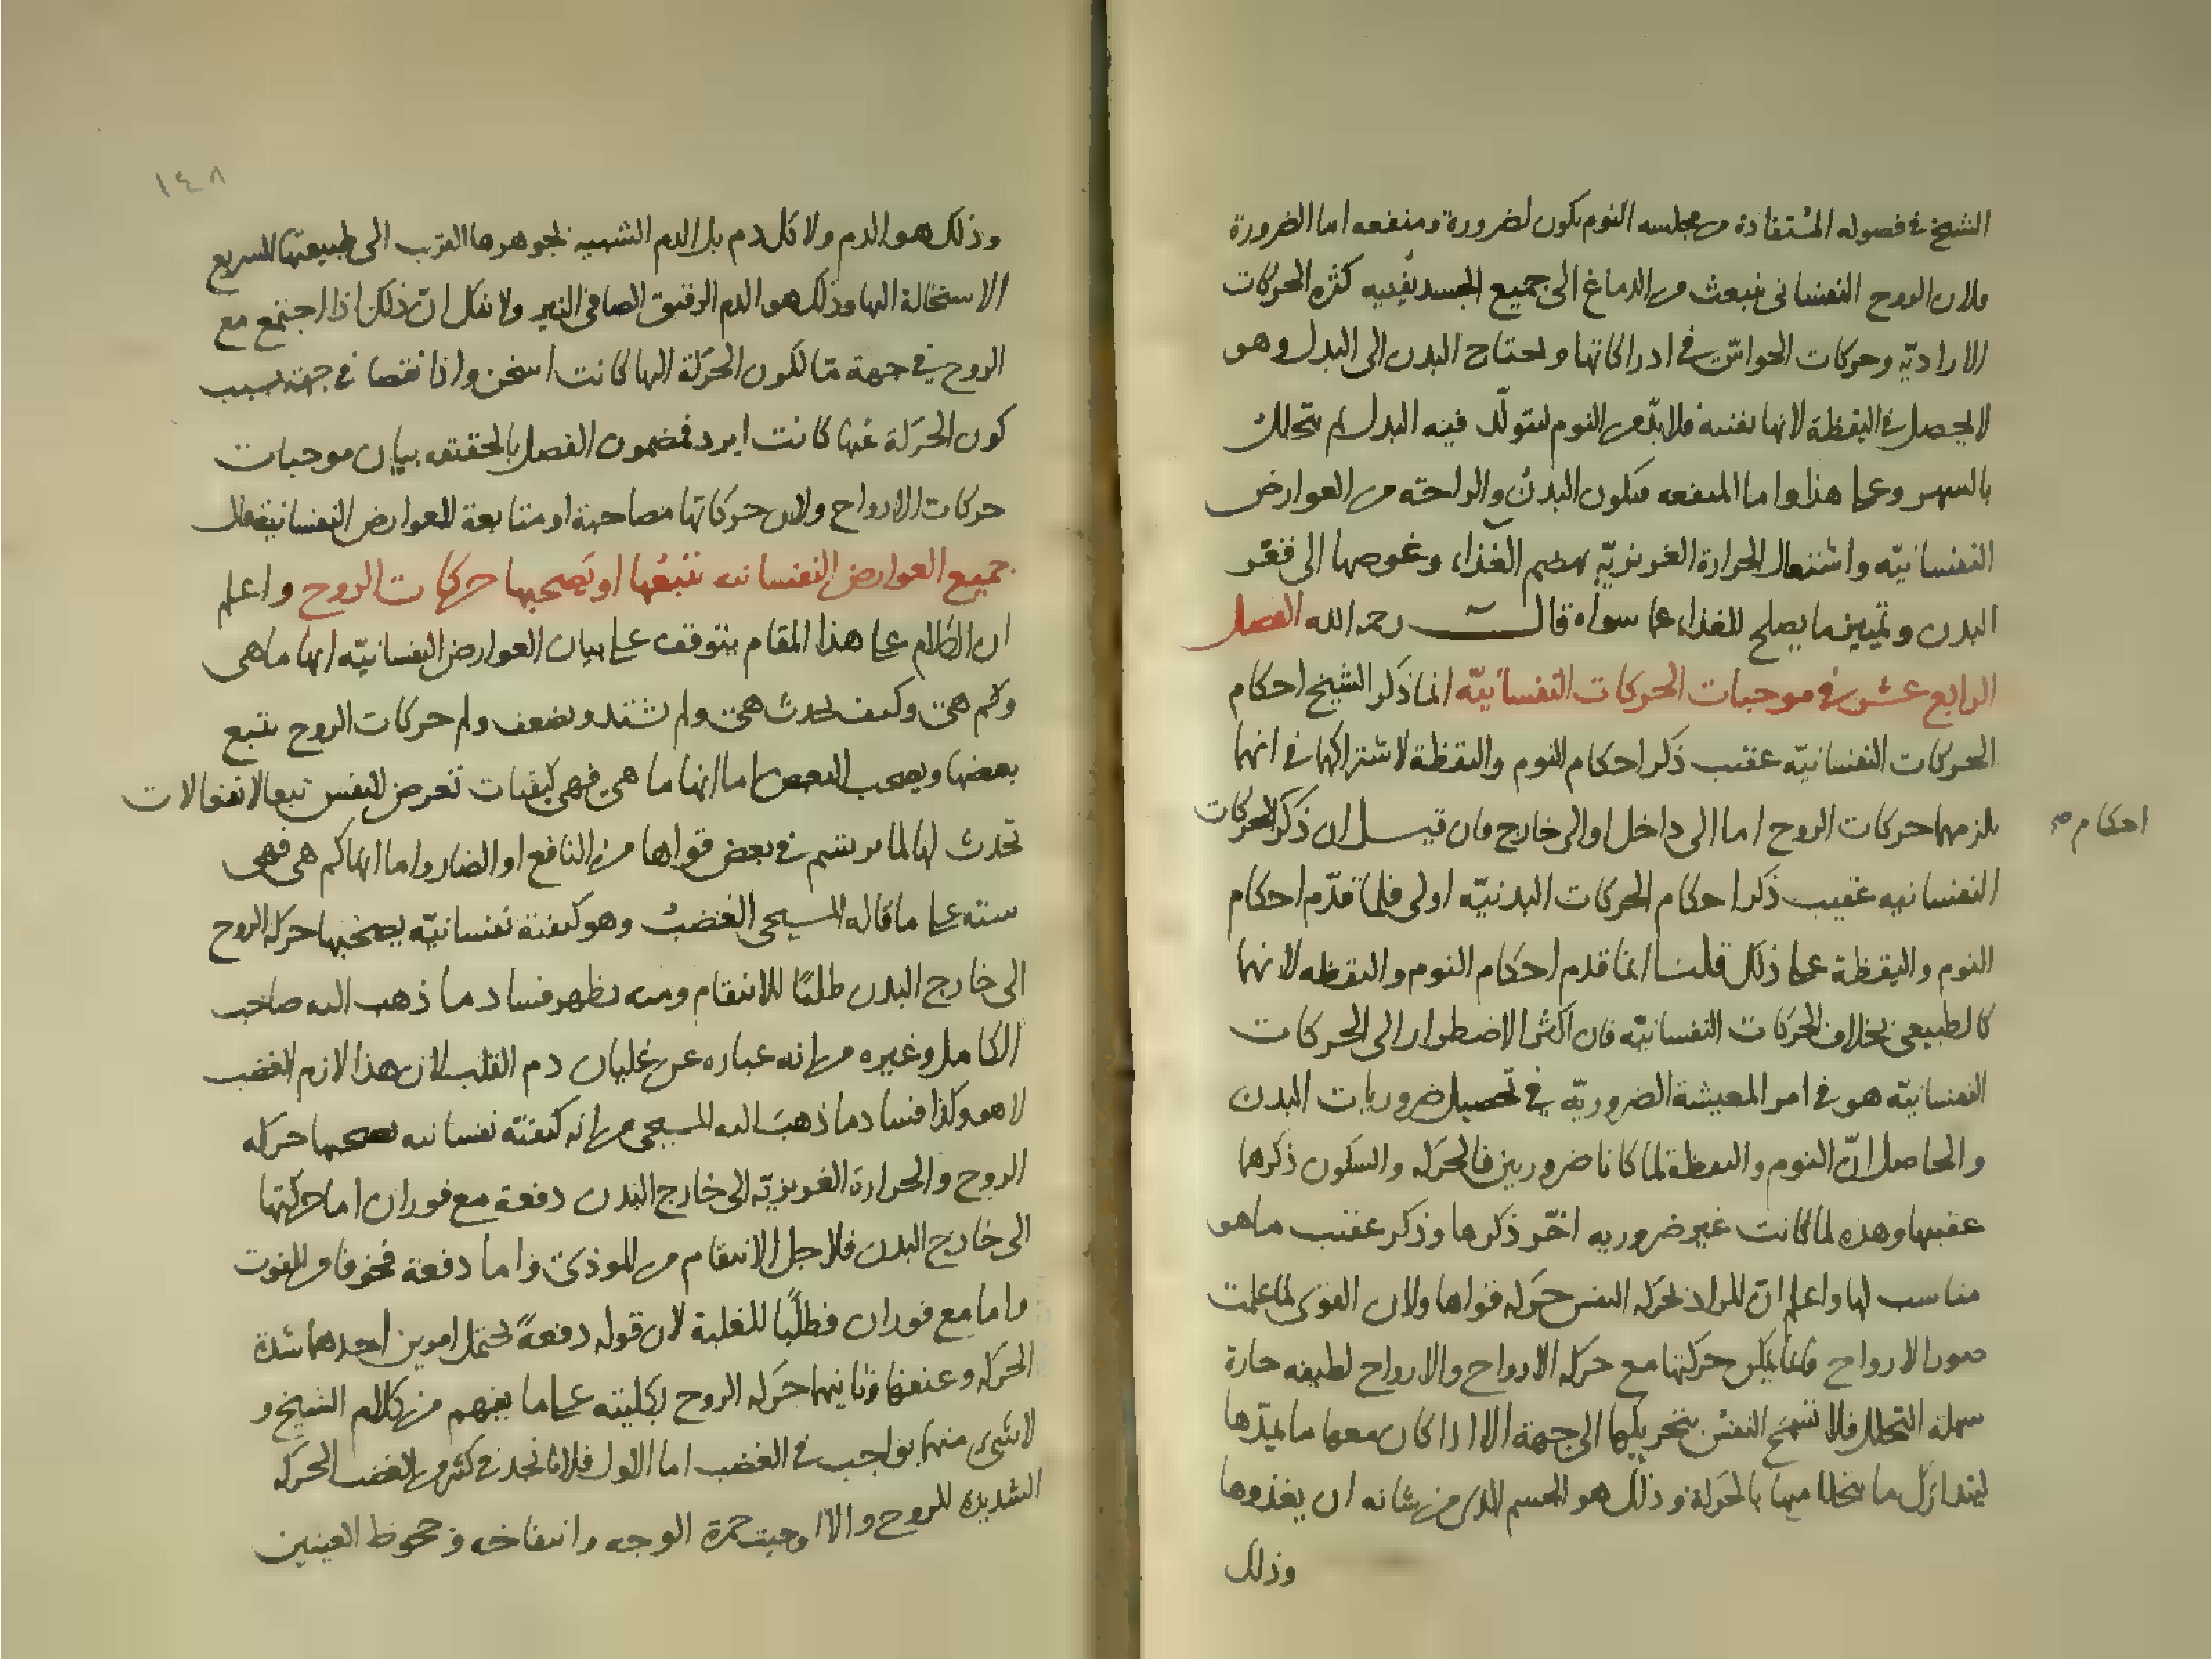 الشيخ في فصوله المستفادة من مجلسه النوم يكون لضرورة ومنفعه اما الضرورة
فلان الروح النفسانى ينبعث من الدماغ الى جميع الجسد يفنيه كثرة الحركات
الاراديّه وحركات الحواسّ في ادراكاتها ويحتاج البدن الى البدل وهو
لا يحصل في اليقظة لانها تفنيه فلا بدّ من النوم ليتولّد فيه البدل لم يتحلل
بالسهر وعلى هذا واما المنفعه فسكون البدن والراحته من العوارض
النفسانيّه واشتعال الحرارة الغريزيّه بهضم الغذاء وغوصها الى قعر
البدن وتمييز ما يصلح للغذاء عما سواه قال رحمه الله الفصل
الرابع عشر في موجبات الحركات النفسانيّه انما ذكر الشيخ احكام
الحركات النفسانيّه عقيب ذكر احكام النوم واليقظة لاشتراكها في انهما
يلزمهما حركات الروح اما الى داخل او الى خارج فان قيل ان ذكر الحركات
احكام صح
النفسانيه عقيب ذكر احكام الحركات البدنيّه اولى فلما قدّم احكام
النوم واليقظة على ذلك قلنا انما قدم احكام النوم واليقظه لانهما
كالطبيعى بخلاف الحركات النفسانيّه فان اكثر الاضطرار الى الحركات
النفسانيّه هو في امر المعيشة الضروريّه في تحصيل ضروريات البدن
والحاصل انّ النوم واليقظة لما كانا ضروريين فالحركه والسكون ذكرهما
عقيبها وهذه لما كانت غير ضروريه اخّر ذكرها وذكر عقيب ما هو
مناسب لها واعلم انّ المراد بحركه النفس حركه قواها ولان القوى لما علمت
صور الارواح فانما يمكن حركتها مع حركه الارواح والارواح لطيفه حارة
سهله التحلل فلا تسمح النفس بتحريكها الى جهة الا اذا كان معها ما يمدّها
ليتدارك ما يتحلل منها بالحركة وذلك هو الجسم الذى من شانه ان يغذوها
وذلك
١٤٨
وذلك هو الدم ولا كل دم بل الدم الشبيه بجوهرها القرب الى طبيعتها السريع
الاستحالة اليها وذلك هو الدم الرقيق الصافى النير ولا شك انّ ذلك اذا اجتمع مع
الروح في جهة ما لكون الحركة اليها كانت اسخن واذا نقصا في جهة بسبب
كون الحركة عنها كانت ابرد فمضمون الفصل بالحقيقه بيان موجبات
حركات الارواح ولان حركاتها مصاحبة او متابعة للعوارض النفسانية فقال
جميع العوارض النفسانيه تتبعها او تصحبها حركات الروح واعلم
ان الكلام على هذا المقام يتوقف على بيان العوارض النفسانيّه انها ما هى
وكم هى وكيف تحدث هى ولم تشتد وتضعف ولم حركات الروح يتبع
بعضها ويصحب البعض اما انها ما هى فهى كيفيات تعرض للنفس تبعا لانفعالات
تحدث لها لما يرتسم في بعض قواها من النافع او الضار واما انها كم هى فهى
ستة على ما قاله المسيحى الغضب وهو كيفية نفسانيّه يصحبها حركه الروح
الى خارج البدن طلبًا للانتقام ومنه يظهر فساد ما ذهب اليه صاحب
الكامل وغيره من انه عباره عن غليان دم القلب لان هذا لازم الغضب
لا هو وكذا فساد ما ذهب اليه المسيحى من انه كيفيّه نفسانيه تصحبها حركه
الروح والحرارة الغريزيّه الى خارج البدن دفعة مع فوران اما حركتها
الى خارج البدن فلاجل الانتقام من الموذى واما دفعة فخوفا من الفوت
واما مع فوران فطلبًا للغلبة لان قوله دفعةً يحتمل امرين احدهما شدة
الحركه وعنفها وثانيهما حركه الروح بكليته على ما يفهم من كلام الشيخ و
لا شىء منهما بواجب في الغضب اما الاول فلانا نجد في كثير من الغضب الحركه
الشديده للروح والا اوجبت حمرة الوجه وانتفاخه وجحوظ العينين